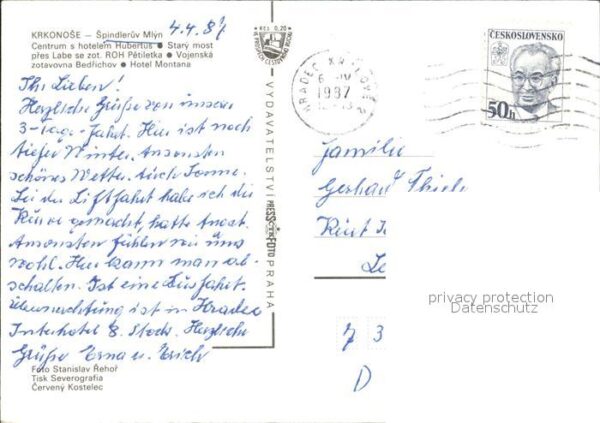 4.4.87
KRKONOŠE – Špindlerův Mlýn
Centrum s hotelem Hubertus ● Starý most
přes Labe se zot. ROH Pětiletka ● Vojenská
zotavovna Bedřichov ● Hotel Montana
Ihr Lieben!
Herzliche Grüße von unserer
3-Tage-Fahrt. Hier ist noch
tiefer Winter. Ansonsten
schönes Wetter. Auch Sonne.
Bei der Liftfahrt habe ich die
gemacht, hatte Angst.
Ansonsten fühlen wir uns
wohl. Hier kann man ab-
schalten. Ist eine Busfahrt.
Übernachtung ist in Hradec
Interhotel 8. Stock. Herzliche
Grüße Erna u. Erich
Foto Stanislav Řehoř
Tisk Severografia
Červený Kostelec
KčS 0,20
VYDAVATELSTVÍ PRESSFOTO PRAHA
HRADEC KRÁLOVÉ 2
1987
ČESKOSLOVENSKO
50h
Familie
Gerhard
privacy protection
Datenschutz
7 3
D